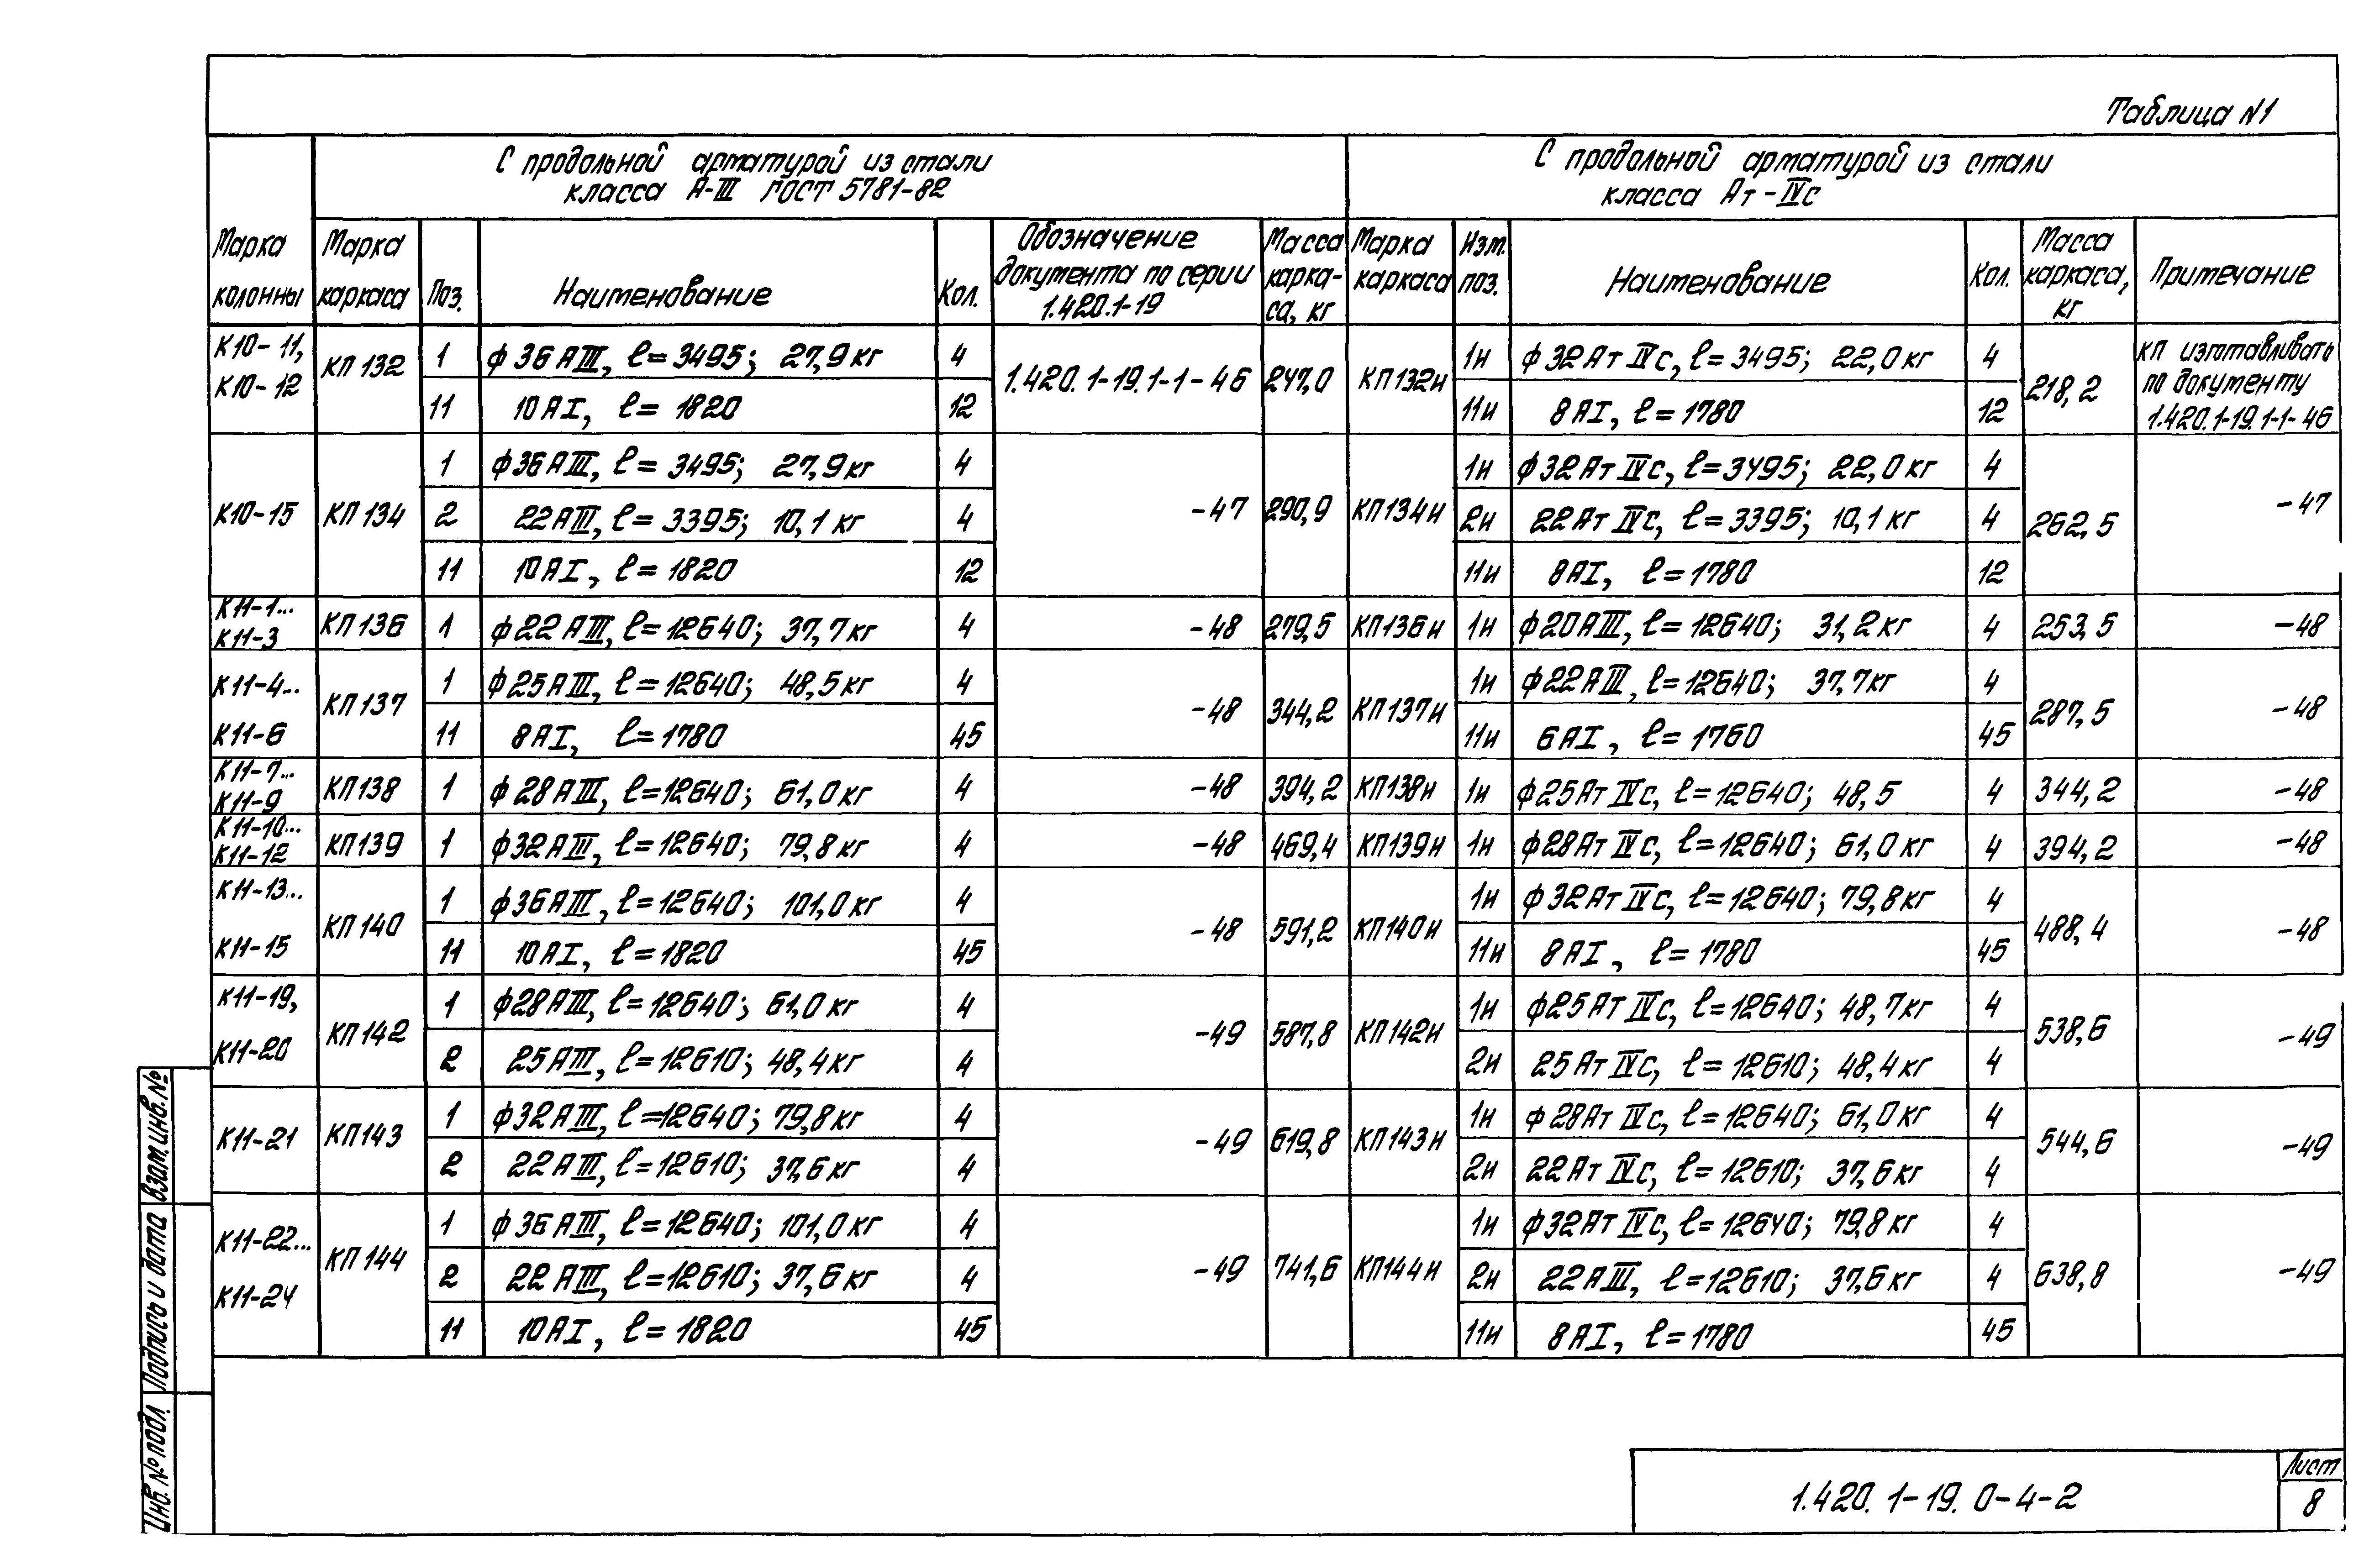 Таблица N1
С продольной арматурой из стали
класса А-III ГОСТ 5781-82
С продольной арматурой из стали
класса Ат-IVс
Марка колонны
Марка каркаса
Поз.
Наименование
Кол.
Обозначение документа по серии 1.420.1-19
Масса карка-са, кг
Марка каркаса
Изм. поз.
Наименование
Кол.
Масса каркаса, кг
Примечание
К10-11, К10-12 КП132 1 ф36АIII, ℓ=3495; 27,9кг 4 1.420.1-19.1-1-46 247,0 КП132и 1и ф32Ат IVс, ℓ=3495; 22,0кг 4 218,2 КП изготавливать по документу 1.420.1-19.1-1-46
11 10АI, ℓ=1820 12 11и 8АI, ℓ=1780 12
К10-15 КП134 1 ф36АIII, ℓ=3495; 27,9кг 4 -47 290,9 КП134и 1и ф32Ат IVс, ℓ=3495; 22,0кг 4 262,5 -47
2 22АIII, ℓ=3395; 10,1кг 4 2и 22Ат IVс, ℓ=3395; 10,1кг 4
11 10АI, ℓ=1820 12 11и 8АI, ℓ=1780 12
К11-1... К11-3 КП136 1 ф22АIII, ℓ=12640; 37,7кг 4 -48 279,5 КП136и 1и ф20АIII, ℓ=12640; 31,2кг 4 253,5 -48
К11-4... К11-6 КП137 1 ф25АIII, ℓ=12640; 48,5кг 4 -48 344,2 КП137и 1и ф22АIII, ℓ=12640; 37,7кг 4 287,5 -48
11 8АI, ℓ=1780 45 11и 6АI, ℓ=1760 45
К11-7... К11-9 КП138 1 ф28АIII, ℓ=12640; 61,0кг 4 -48 394,2 КП138и 1и ф25Ат IVс, ℓ=12640; 48,5 4 344,2 -48
К11-10... К11-12 КП139 1 ф32АIII, ℓ=12640; 79,8кг 4 -48 469,4 КП139и 1и ф28Ат IVс, ℓ=12640; 61,0кг 4 394,2 -48
К11-13... К11-15 КП140 1 ф36АIII, ℓ=12640; 101,0кг 4 -48 591,2 КП140и 1и ф32Ат IVс, ℓ=12640; 79,8кг 4 488,4 -48
11 10АI, ℓ=1820 45 11и 8АI, ℓ=1780 45
К11-19, К11-20 КП142 1 ф28АIII, ℓ=12640; 61,0кг 4 -49 587,8 КП142и 1и ф25Ат IVс, ℓ=12640; 48,7кг 4 538,6 -49
2 25АIII, ℓ=12610; 48,4кг 4 2и 25Ат IVс, ℓ=12610; 48,4кг 4
К11-21 КП143 1 ф32АIII, ℓ=12640; 79,8кг 4 -49 619,8 КП143и 1и ф28Ат IVс, ℓ=12640; 61,0кг 4 544,6 -49
2 22АIII, ℓ=12610; 37,6кг 4 2и 22Ат IVс, ℓ=12610; 37,6кг 4
К11-22... К11-24 КП144 1 ф36АIII, ℓ=12640; 101,0кг 4 -49 741,6 КП144и 1и ф32Ат IVс, ℓ=12640; 79,8кг 4 638,8 -49
2 22АIII, ℓ=12610; 37,6кг 4 2и 22АIII, ℓ=12610; 37,6кг 4
11 10АI, ℓ=1820 45 11и 8АI, ℓ=1780 45
Взам.инв.№
Подпись и дата
Инв.№подл.
1.420.1-19.0-4-2
Лист
8